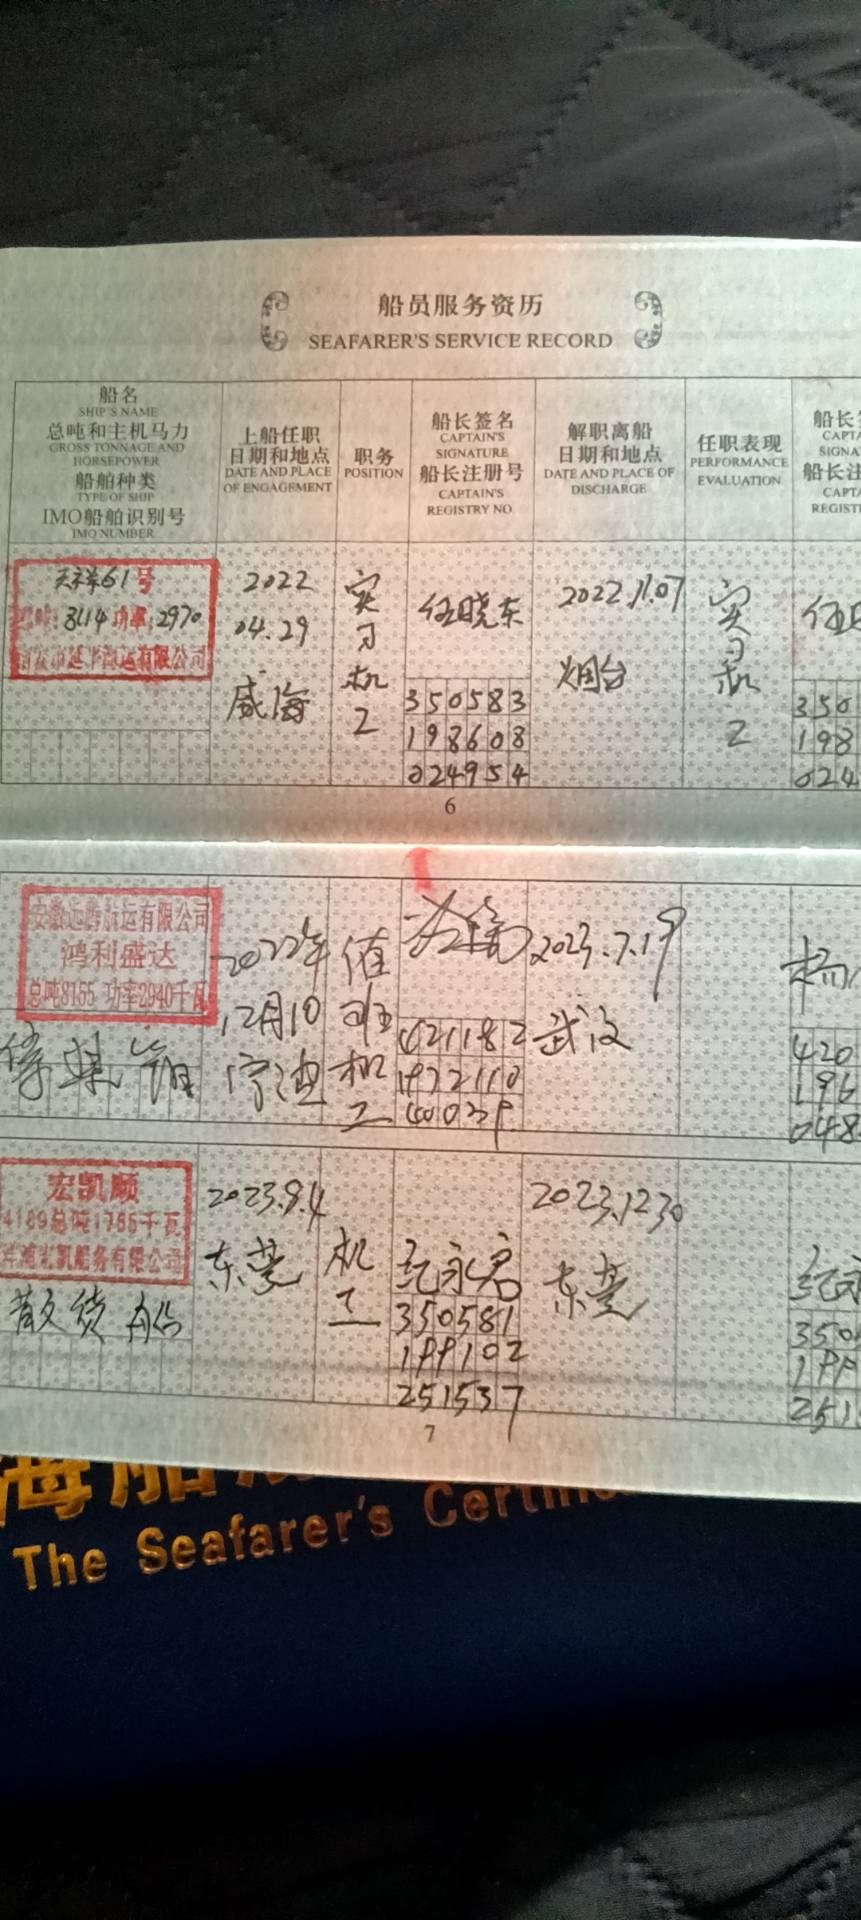 船员服务资历
SEAFARER'S SERVICE RECORD
船名
SHIP'S NAME
总吨和主机马力
GROSS TONNAGE AND
HORSEPOWER
船舶种类
TYPE OF SHIP
IMO船舶识别号
IMO NUMBER
上船任职
日期和地点
DATE AND PLACE
OF ENGAGEMENT
职务
POSITION
船长签名
CAPTAIN'S
SIGNATURE
船长注册号
CAPTAIN'S
REGISTRY NO.
解职离船
日期和地点
DATE AND PLACE OF
DISCHARGE
任职表现
PERFORMANCE
EVALUATION
船长
CAPTA
SIGNA
船长注
CAPT
REGIST
61号
总吨:8114 功率:2970
海运有限公司
2022
04.29
威海
实
习
机
工
任晓东
350583
198608
024954
2022.11.07
烟台
实
习
机
工
任
350
198
024
6
安徽远腾航运有限公司
鸿利盛达
总吨8155 功率2940千瓦
2022年
12月10
宁德
值
班
机
工
421182
1972110
40039
2023.7.19
武汉
杨
420
196
048
宏凯顺
4189总吨1765千瓦
洋浦光凯船务有限公司
散货船
2023.9.4
东莞
机
工
纪永君
350581
199102
251537
2023.12.30
东莞
纪永
350
199
251
7
海船
The Seafarer's Certific